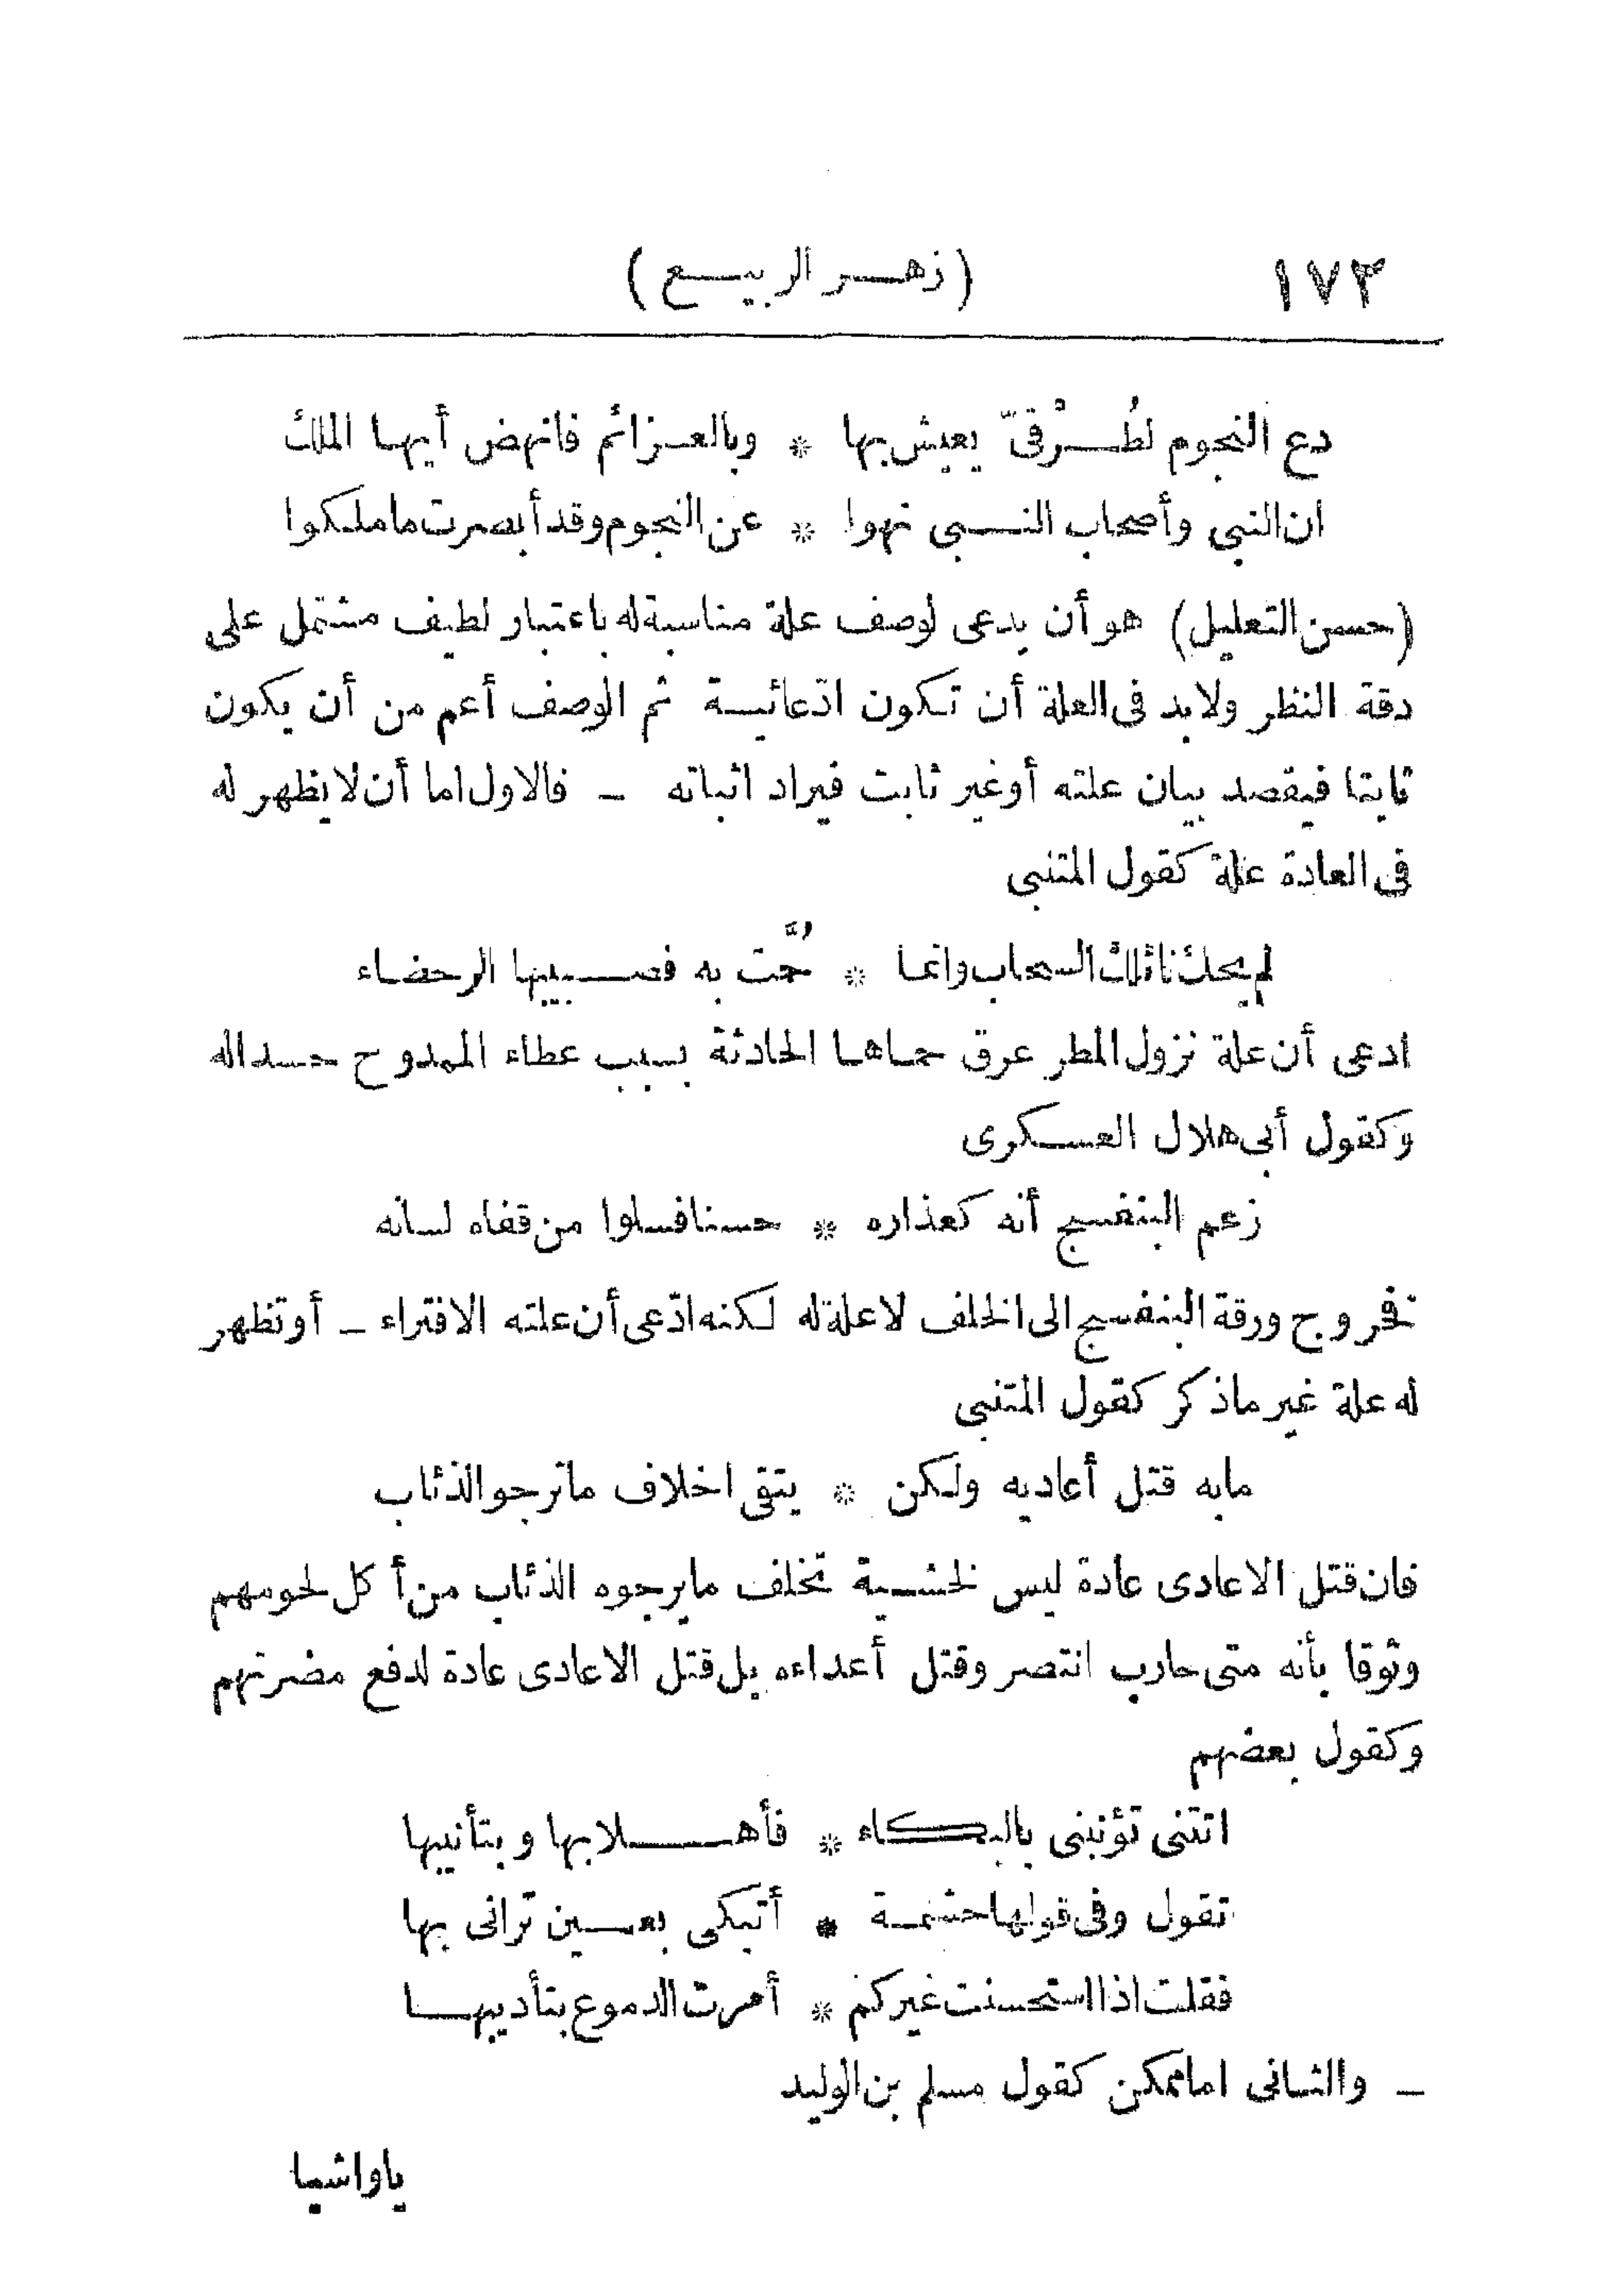 ١٧٣ (زهر الربيع)
دع النجوم لطُرْقىّ يعيش بها * وبالعزائم فانهض أيها الملك
ان النبى وأصحاب النبى نهوا * عن النجوم وقد أبصرت ما ملكوا
(حسن التعليل) هو أن يدعى لوصف علة مناسبة له باعتبار لطيف مشتمل على
دقة النظر ولابد فى العلة أن تكون ادّعائية ثم الوصف أعم من أن يكون
ثابتا فيقصد بيان علته أو غير ثابت فيراد اثباته ـ فالاول اما أن لا يظهر له
فى العادة علة كقول المتنبى
لم يحك نائلك السحاب وانما * حُمَّت به فصبيبها الرحضاء
ادعى أن علة نزول المطر عرق حماها الحادثة بسبب عطاء الممدوح حسداله
وكقول أبى هلال العسكرى
زعم البنفسج أنه كعذاره * حسنا فسلوا من قفاه لسانه
نخروج ورقة البنفسج الى الخلف لا علة له لكنه ادّعى أن علته الافتراء ـ أو تظهر
له علة غير ماذكر كقول المتنبى
مابه قتل أعاديه ولكن * يتقى اخلاف ماترجو الذئاب
فان قتل الاعادى عادة ليس لخشية تخلف مايرجوه الذئاب من أكل لحومهم
وثوقا بأنه متى حارب انتصر وقتل أعداءه بل قتل الاعادى عادة لدفع مضرتهم
وكقول بعضهم
اتتنى تؤنبنى بالبكاء * فأهلا بها وبتأنيبها
تقول وفى قولها حشمة * أتبكى بعين ترانى بها
فقلت اذا استحسنت غيركم * أمرت الدموع بتأديبها
ـ والثانى اما ممكن كقول مسلم بن الوليد
ياواشيا